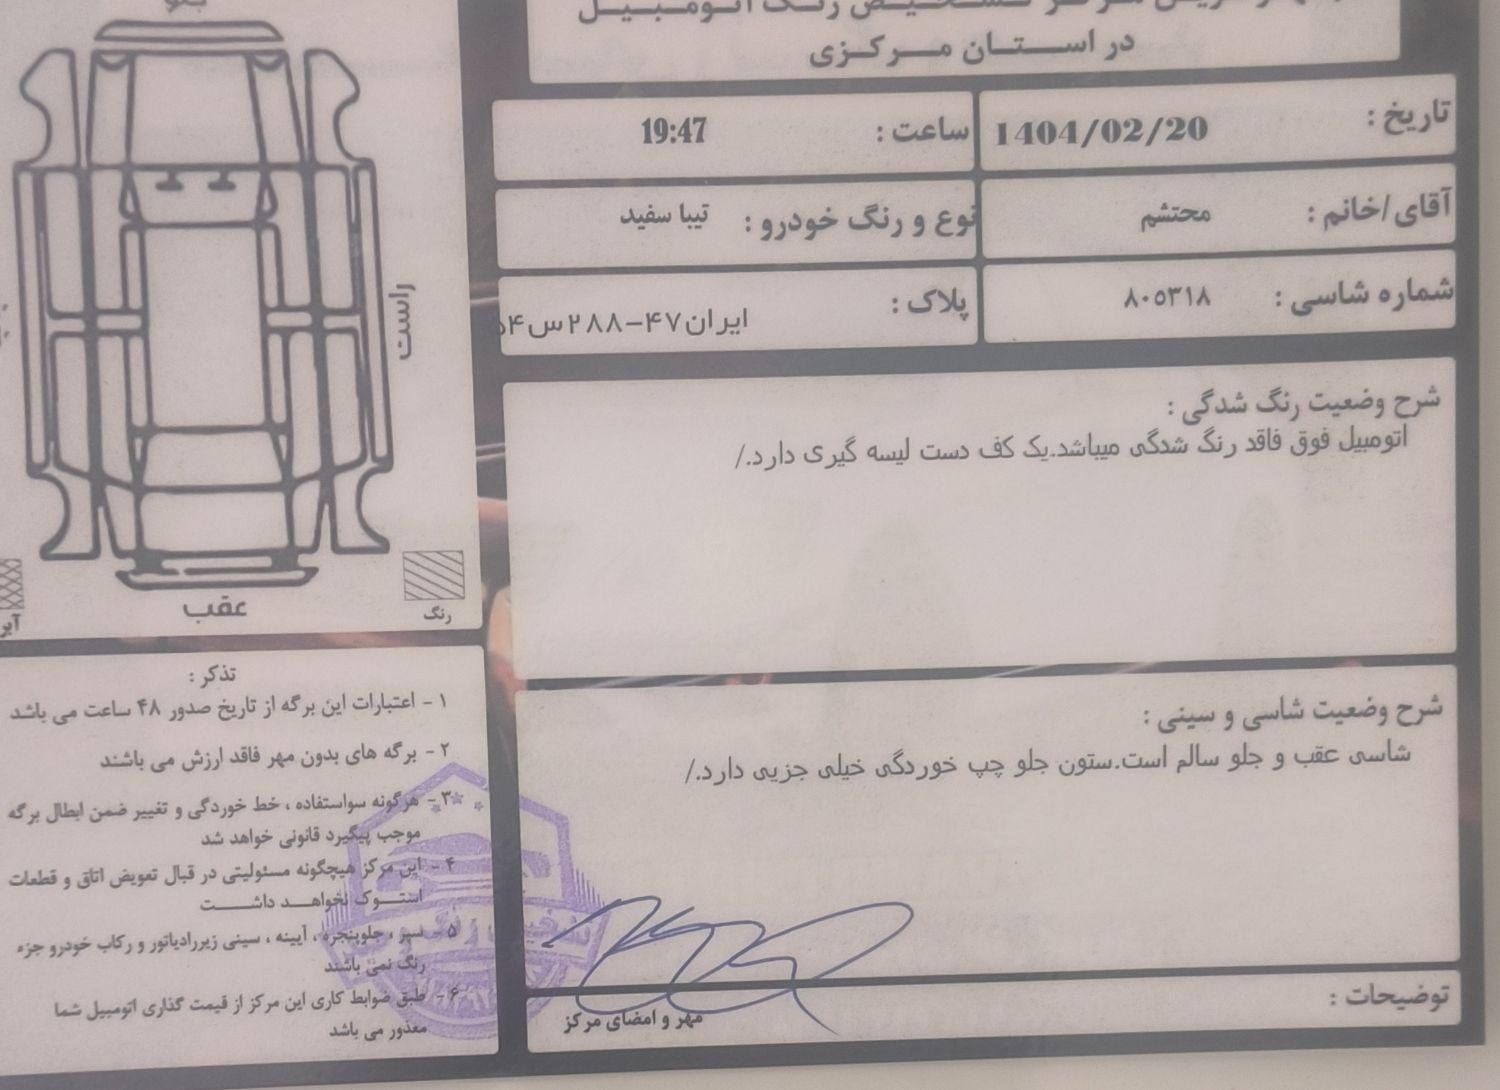 در استان مرکزی
تاریخ : 1404/02/20
ساعت : 19:47
آقای/خانم : محتشم
نوع و رنگ خودرو : تیبا سفید
شماره شاسی : ۸۰۵۳۱۸
پلاک : ایران۴۷-۲۸۸س۵۴
شرح وضعیت رنگ شدگی :
اتومبیل فوق فاقد رنگ شدگی میباشد.یک کف دست لیسه گیری دارد./
شرح وضعیت شاسی و سینی :
شاسی عقب و جلو سالم است.ستون جلو چپ خوردگی خیلی جزیی دارد./
توضیحات :
مهر و امضای مرکز
جلو
راست
عقب
رنگ
تذکر :
۱ - اعتبارات این برگه از تاریخ صدور ۴۸ ساعت می باشد
۲ - برگه های بدون مهر فاقد ارزش می باشند
۳ - هرگونه سواستفاده ، خط خوردگی و تغییر ضمن ابطال برگه
موجب پیگیرد قانونی خواهد شد
۴ - این مرکز هیچگونه مسئولیتی در قبال تعویض اتاق و قطعات
استوک نخواهد داشت
۵ - سپر ، جلوپنجره ، آیینه ، سینی زیررادیاتور و رکاب خودرو جزء
رنگ نمی باشند
۶ - طبق ضوابط کاری این مرکز از قیمت گذاری اتومبیل شما
معذور می باشد